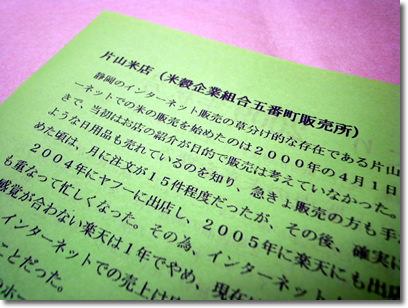 片山米店（米穀企業組合五番町販売所）
静岡のインターネット販売の草分け的な存在である片山
ーネットでの米の販売を始めたのは２０００年の４月１日
きで、当初はお店の紹介が目的で販売は考えていなかった。
ような日用品も売れているのを知り、急きょ販売の方も手が
めた頃は、月に注文が１５件程度だったが、その後、確実に
２００４年にヤフーに出店し、２００５年に楽天にも出
も重なって忙しくなった。その為、インターネット
感覚が合わない楽天は１年でやめ、現在
インターネットでの売上は
ことだった。
のホ